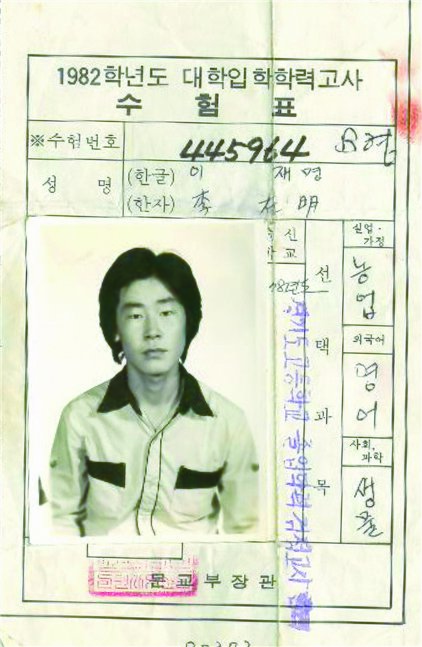 1982학년도 대학입학학력고사
수험표
※수험번호 445964
성명 (한글) 이재명
(한자) 李在明
선택과목
실업·가정 농업
외국어 영어
사회,과학 생물
82년도
경기도 고등학교 졸업학력검정고시
문교부장관